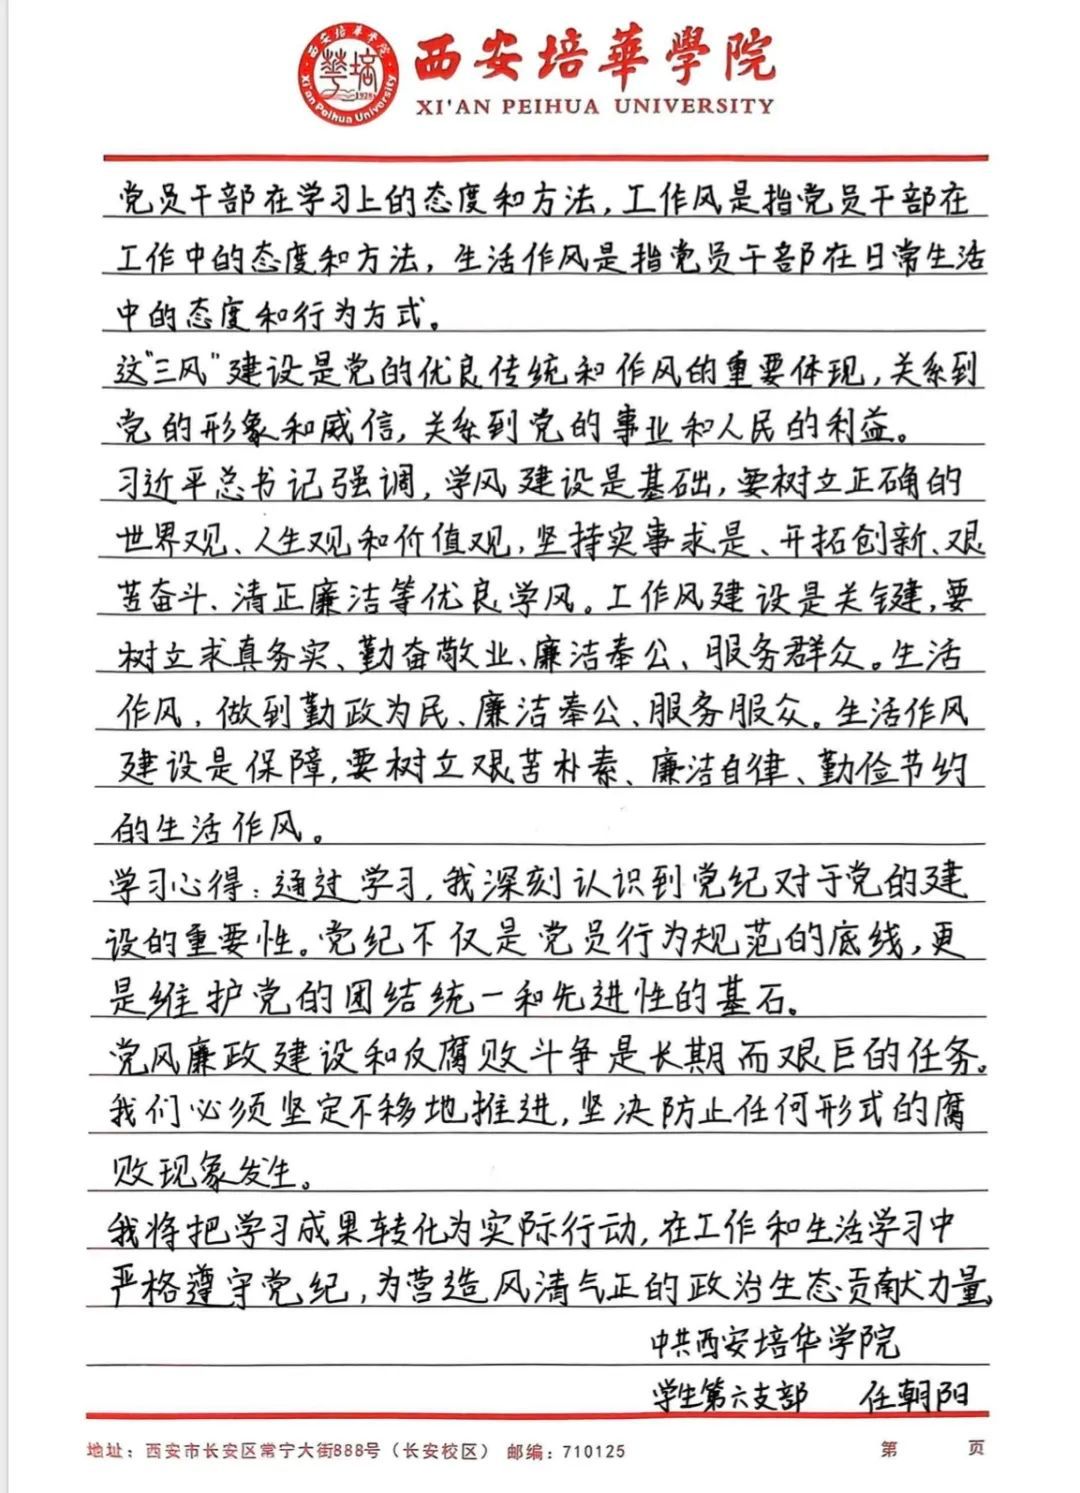 西安培華學院
XI'AN PEIHUA UNIVERSITY
西安培华学院
Xi'an Peihua University
1928
党员干部在学习上的态度和方法，工作风是指党员干部在
工作中的态度和方法，生活作风是指党员干部在日常生活
中的态度和行为方式。
这“三风”建设是党的优良传统和作风的重要体现，关系到
党的形象和威信，关系到党的事业和人民的利益。
习近平总书记强调，学风建设是基础，要树立正确的
世界观、人生观和价值观，坚持实事求是、开拓创新、艰
苦奋斗、清正廉洁等优良学风。工作风建设是关键，要
树立求真务实、勤奋敬业、廉洁奉公、服务群众。生活
作风，做到勤政为民、廉洁奉公、服务服众。生活作风
建设是保障，要树立艰苦朴素、廉洁自律、勤俭节约
的生活作风。
学习心得：通过学习，我深刻认识到党纪对于党的建
设的重要性。党纪不仅是党员行为规范的底线，更
是维护党的团结统一和先进性的基石。
党风廉政建设和反腐败斗争是长期而艰巨的任务。
我们必须坚定不移地推进，坚决防止任何形式的腐
败现象发生。
我将把学习成果转化为实际行动，在工作和生活学习中
严格遵守党纪，为营造风清气正的政治生态贡献力量。
中共西安培华学院
学生第六支部 任朝阳
地址：西安市长安区常宁大街888号（长安校区） 邮编：710125 第 页